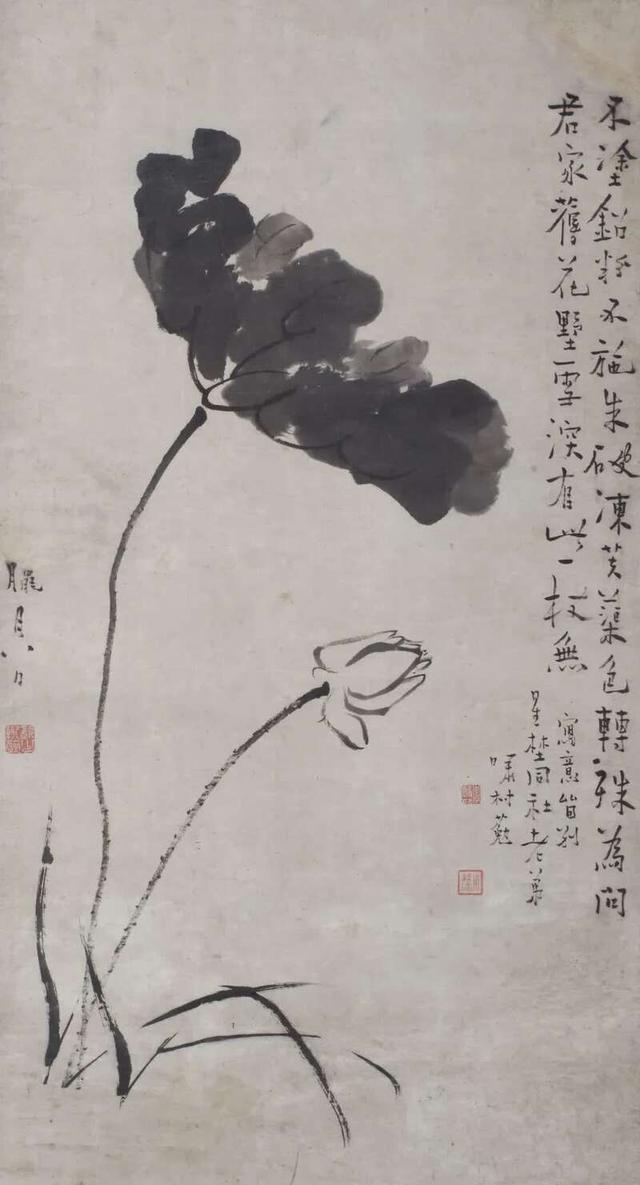 不塗鉛粉不施朱破凍芙蕖色轉殊為問
君家舊花墅雪深有此一枝無
寫意
星埜同社老
嘯村葂
臘月八日